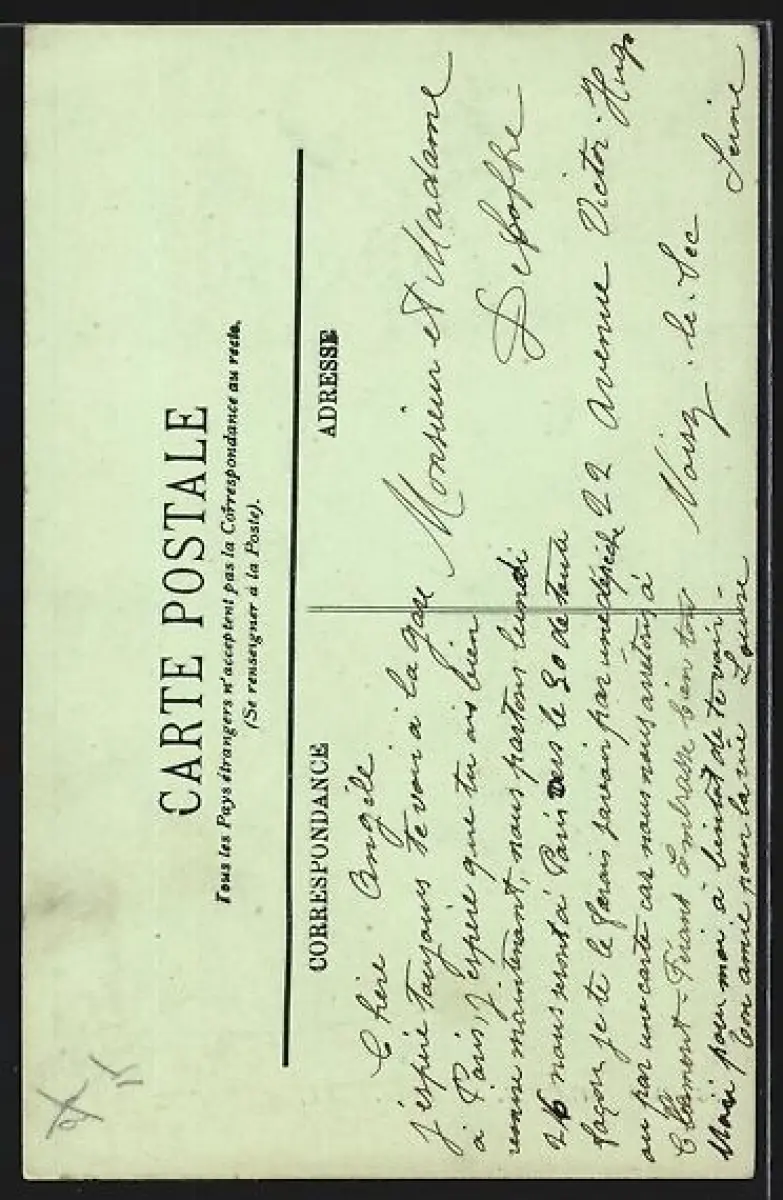 CARTE POSTALE
Tous les Pays étrangers n'acceptent pas la Correspondance au recto.
(Se renseigner à la Poste).
CORRESPONDANCE
Chère Angèle
j'espère toujours te voir à la gare
à Paris, j'espère que tu es bien
remise maintenant, nous partons lundi
26 nous seront à Paris vers le 30 de toute
façon je te le ferais savoir par une dépêche
ou par une carte car nous nous arrêtons à
Clermont-Ferant Embrasse bien ton
Mari pour moi à bientôt de te voir-
ton amie pour la vie Louise
ADRESSE
Monsieur et Madame
22 Avenue Victor-Hugo
Noisy-le-Sec
Seine